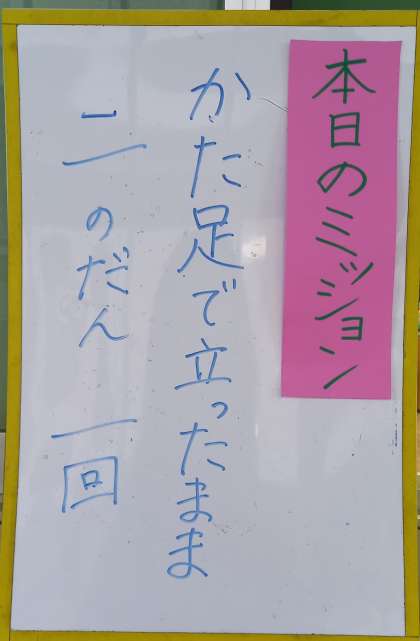 本日のミッション
かた足で立ったまま
二のだん一回